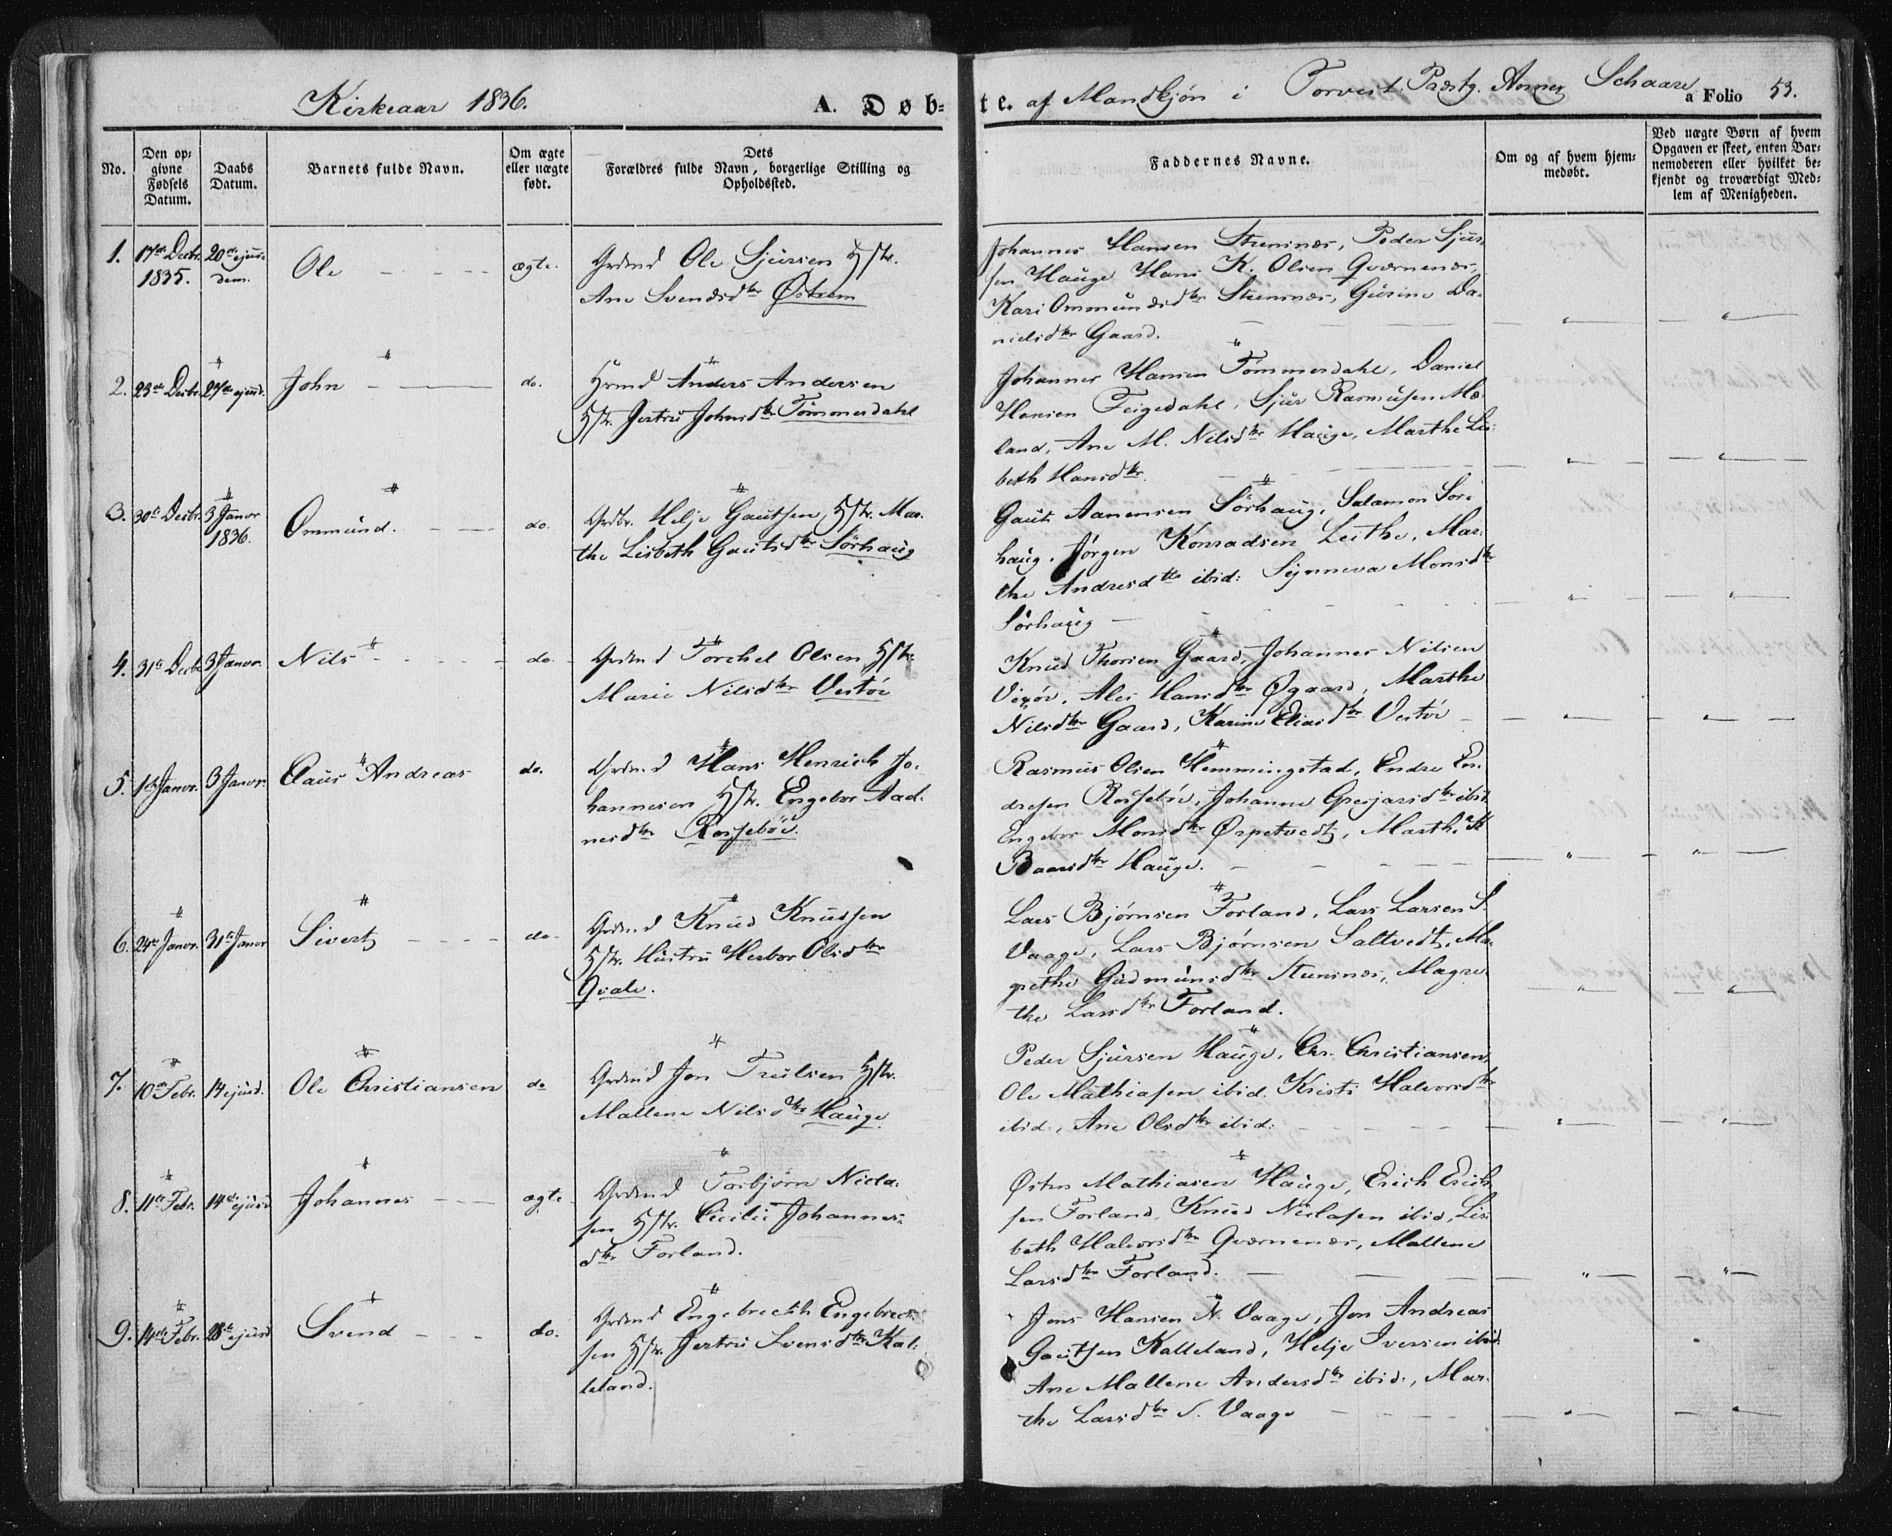 Kirkeaar 1836.
A. Døb-
te. af Mandkjøn i Torvest. Præstg. Annex Schaare a Folio 53.
No.
Den op-
givne
Fødsels
Datum.
Daabs
Datum.
Barnets fulde Navn.
Om ægte
eller uægte
født.
Dets
Forældres fulde Navn, borgerlige Stilling og
Opholdssted.
Faddernes Navne.
Om og af hvem hjem-
medøbt.
Ved uægte Børn af hvem
Opgaven er skeet, enten Bar-
nemoderen eller hvilket be-
kjendt og troværdigt Med-
lem af Menigheden.
1. 17de Decbr. 1835. 20de ejus-
dem. Ole ægte.
Grdmd Ole Sjursen Hstr.
Ane Svendsdtr Østrem
Johannes Hansen Steensnæs, Peder Sjur-
sen Hauge Hans K. Olsen Qværnenæs,
Kari Ommundsdtr Steensnæs, Gurine Da-
nielsdtr Gaard.
2. 23de Decbr. 27de ejusd. John do.
Hrmd Anders Andersen
Hstr. Jertru Johnsdtr Tømmerdahl
Johannes Hansen Tømmerdahl, Daniel
Hansen Feigedahl, Sjur Rasmusen Mæ-
land, Ane M. Nilsdtr Hauge, Marthe Lis-
beth Hansdtr.
3. 30te Decbr. 3 Janvr 1836. Ommund. do.
Grdbr. Helje Gautsen, Hstr. Mar-
the Lisbeth Gautsdtr Sørhaug
Gaute Aanensen Sørhaug, Salamon Sør-
haug, Jørgen Konradsen Leithe, Mar-
the Andresdtr ibid: Synneva Monsdtr
Sørhaug
4. 31te Decbr 3 Janvr. Nils do.
Grdmd Torchel Olsen Hstr.
Marie Nilsdtr Vestøe
Knud Thorsen Gaard, Johannes Nilsen
Vexøe, Ales Hansdtr Øgaard, Marthe
Nilsdtr Gaard, Karine Eliasdtr Vestøe
5. 1ste Janvr. 3 Janvr. Claus Andreas do.
Grdmd Hans Henrich Jo-
hannesen Hstr. Engebor Aad-
nesdtr Rossebøe.
Rasmus Olsen Hemmingstad, Endre En-
dresen Rossebøe, Johanne Gresjarsdtr ibid.
Engebor Monsdtr Ørpetvedt, Marthe K
Baarsdtr Hauge.
6. 24de Janvr. 31te Janvr Sivert do.
Grdmd Knud Knudsen
Hstr. Hustru Herbor Olsdtr
Qvale.
Lars Bjørnsen Forland, Lars Larsen S.
Vaage, Lars Bjørnsen Saltvedt, Ma-
grethe Gudmundsdtr Steensnæs, Magre-
the Larsdtr Forland.
7. 10de Febr. 14 ejusd. Ole Christiansen do
Grdmd Jon Trulsen Hstr.
Mallene Nilsdtr Hauge
Peder Sjursen Hauge, Chr. Christiansen,
Ole Mathiasen ibid. Kristi Halvorsdtr
ibid., Ane Olsdtr ibid:
8. 11te Febr. 14de ejusd Johannes ægte
Grdmd Torbjørn Niela-
sen Hstr. Cicilie Johannes-
dtr Forland.
Østen Mathiasen Hauge, Erich Erich-
sen Forland, Knud Nielasen ibid, Lis-
beth Halvorsdtr Qværnenæs, Mallene
Larsdtr Forland.
9. 14de Febr. 28de ejusd Svend do.
Grdmd Engebrecth Engebrect-
sen Hstr. Jertru Svensdtr Kal-
leland.
Jens Hansen N. Vaage, Jon Andreas
Gautsen Kalleland, Helje Iversen ibid.
Ane Mallene Andersdtr ibid., Mar-
the Larsdtr N. Vaage